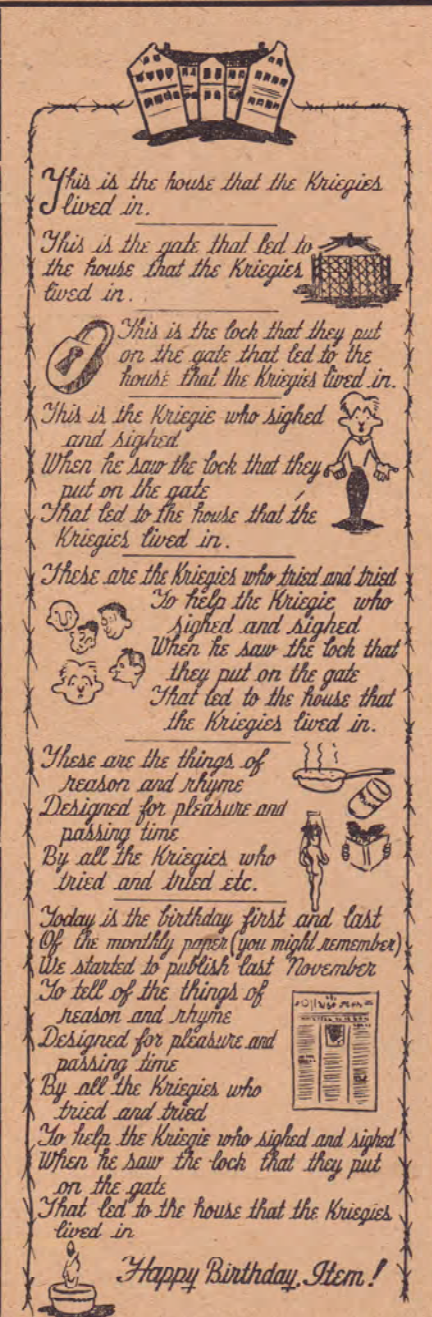 This is the house that the Kriegies
lived in.
This is the gate that led to
the house that the Kriegies
lived in.
This is the lock that they put
on the gate that led to the
house that the Kriegies lived in.
This is the Kriegie who sighed
and sighed
When he saw the lock that they
put on the gate
That led to the house that the
Kriegies lived in.
These are the Kriegies who tried and tried
To help the Kriegie who
sighed and sighed
When he saw the lock that
they put on the gate
That led to the house that
the Kriegies lived in.
These are the things of
reason and rhyme
Designed for pleasure and
passing time
By all the Kriegies who
tried and tried etc.
Today is the birthday first and last
Of the monthly paper (you might remember)
We started to publish last November
To tell of the things of
reason and rhyme
Designed for pleasure and
passing time
By all the Kriegies who
tried and tried
To help the Kriegie who sighed and sighed
When he saw the lock that they put
on the gate
That led to the house that the Kriegies
lived in
Happy Birthday, Item!